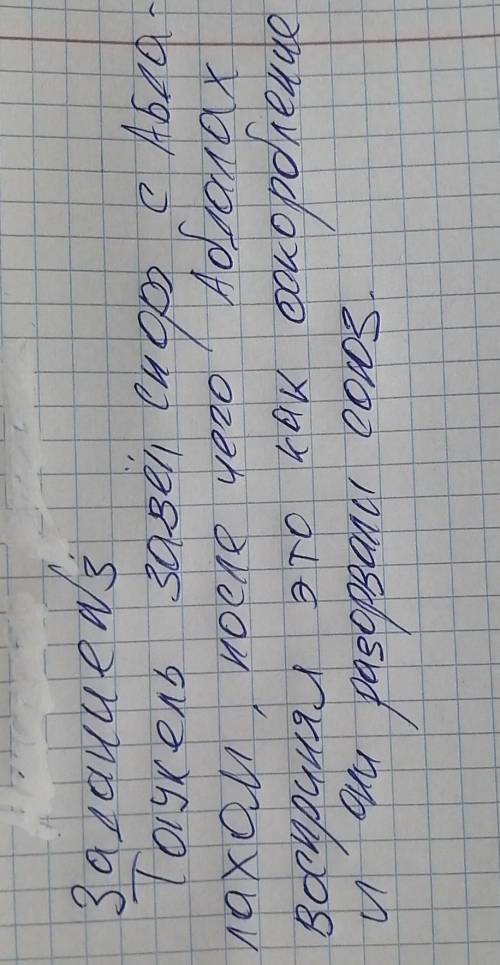 Задание №3
Тауекель завёл спор с Абла-
лахом, после чего Аблалах
воспринял это как оскорбление
и они разорвали союз.